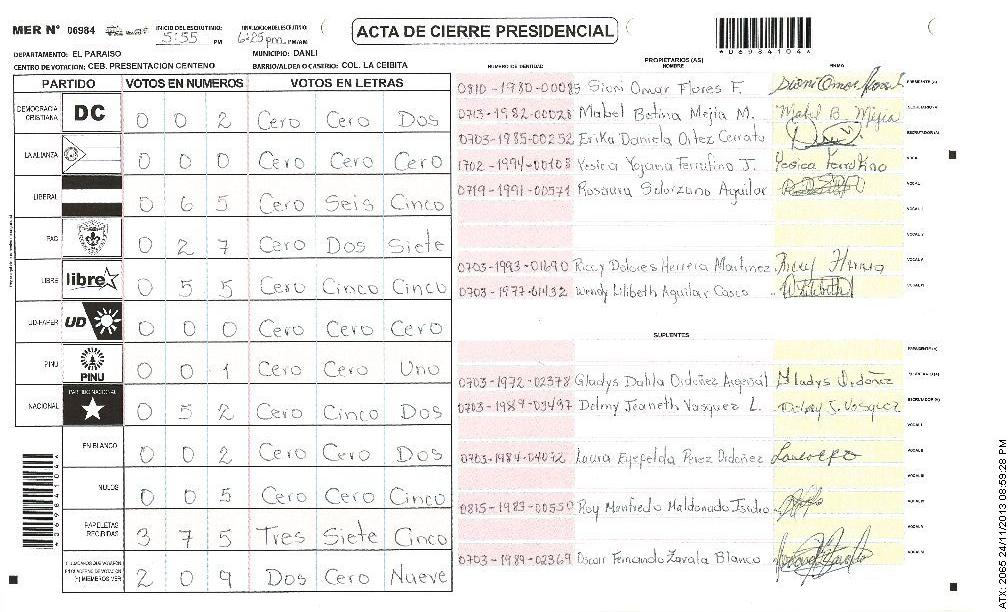 MER Nº 06984 INICIO DEL ESCRUTINIO: 5:55 PM FINALIZACION DEL ESCRUTINIO: 6:25 pm PM/AM
ACTA DE CIERRE PRESIDENCIAL
*06984104*
DEPARTAMENTO: EL PARAISO MUNICIPIO: DANLI
CENTRO DE VOTACION: CEB. PRESENTACION CENTENO BARRIO/ALDEA O CASERIO: COL. LA CEIBITA
PARTIDO VOTOS EN NUMEROS VOTOS EN LETRAS
DEMOCRACIA CRISTIANA DC 0 0 2 Cero Cero Dos
LA ALIANZA 0 0 0 Cero Cero Cero
LIBERAL 0 6 5 Cero Seis Cinco
PAC 0 2 7 Cero Dos Siete
LIBRE libre 0 5 5 Cero Cinco Cinco
UD-FAPER UD 0 0 0 Cero Cero Cero
PINU PINU 0 0 1 Cero Cero Uno
NACIONAL PARTIDO NACIONAL 0 5 2 Cero Cinco Dos
EN BLANCO 0 0 2 Cero Cero Dos
NULOS 0 0 5 Cero Cero Cinco
PAPELETAS RECIBIDAS 3 7 5 Tres Siete Cinco
(+) MIEMBROS MER 2 0 9 Dos Cero Nueve
*06984104*
PROPIETARIOS (AS)
NUMERO DE IDENTIDAD NOMBRE FIRMA
0810-1980-00085 Sioni Omar Flores F. PRESIDENTE (A)
0713-1982-00028 Mabel Betina Mejia M. Mabel B. Mejia SECRETARIO (A)
0703-1985-00252 Erika Daniela Ortez Cerrato ESCRUTADOR (A)
1702-1994-00108 Yesica Yojana Ferrufino J. Yesica Ferrufino VOCAL I
0719-1991-00571 Rosaura Solorzano Aguilar VOCAL
VOCAL
VOCAL
0703-1993-01690 Riccy Dolores Herrera Martinez VOCAL
0703-1977-01432 Wendy Lilibeth Aguilar Casco VOCAL
SUPLENTES
PRESIDENTE (A)
0703-1972-02378 Gladys Dalila Ordoñez Argeñal Gladys Ordoñez SECRETARIO (A)
0703-1989-03497 Delmy Jeaneth Vasquez L. Delmy J. Vasquez ESCRUTADOR (A)
VOCAL
0703-1984-04072 Laura Perez Ordoñez VOCAL
VOCAL
0815-1983-00550 Roy Manfredo Maldonado Isidro VOCAL
VOCAL
0703-1989-02369 Oscar Fernando Zavala Blanco VOCAL
ATX: 2065 24/11/2013 08:59:28 PM